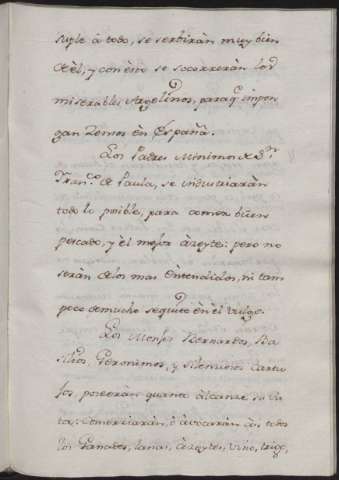 suple à todo, se serbiràn muy bien
de èl, y con èsto se socorreràn los
miserables Argelinos, para q.e impon
gan Remos en España.
Los Padres Minimos de S.n
Fran.co de Paula, se industriaràn
todo lo posible, para comer buen
pescado, y èl mejor àzeyte: pero no
seràn de los mas èntendidos, ni tam
poco de mucho sequito èn èl vulgo.
Los Monjes Bernardos, Ba
silios, Geronimos, y silenciosos Cartu
jos, poseeràn quanto alcanze su vis
ta: Comerciaràn, ò abocarràn còn todos
los Ganados, lanas, àzeytes, vino, trigo,